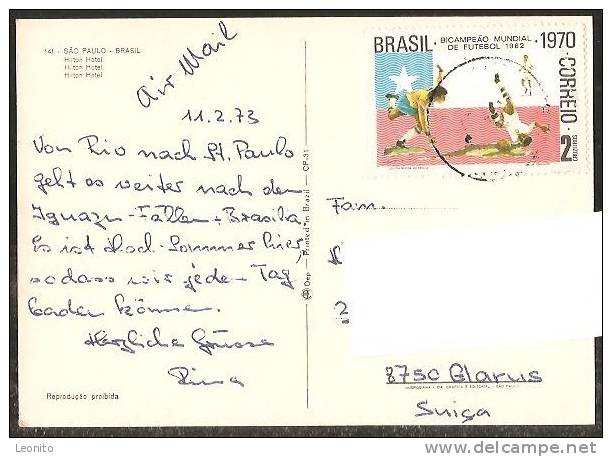 141 - SÃO PAULO - BRASIL
Hilton Hotel
Hilton Hotel
Hilton Hotel
Air Mail
11.2.73
Von Rio nach St. Paulo
geht es weiter nach den
Iguazu-Fällen + Brasilia.
Es ist Hoch-Sommer hier,
sodass wir jeden Tag
baden können.
Herzliche Grüsse
Reprodução proibida
Dep - Printed in Brazil - CP-31
BRASIL · BICAMPEÃO MUNDIAL DE FUTEBOL 1962 · 1970 · CORREIO · 2 CRUZEIROS
Fam.
8750 Glarus
Suiça
Leonito
www.delcampe.net